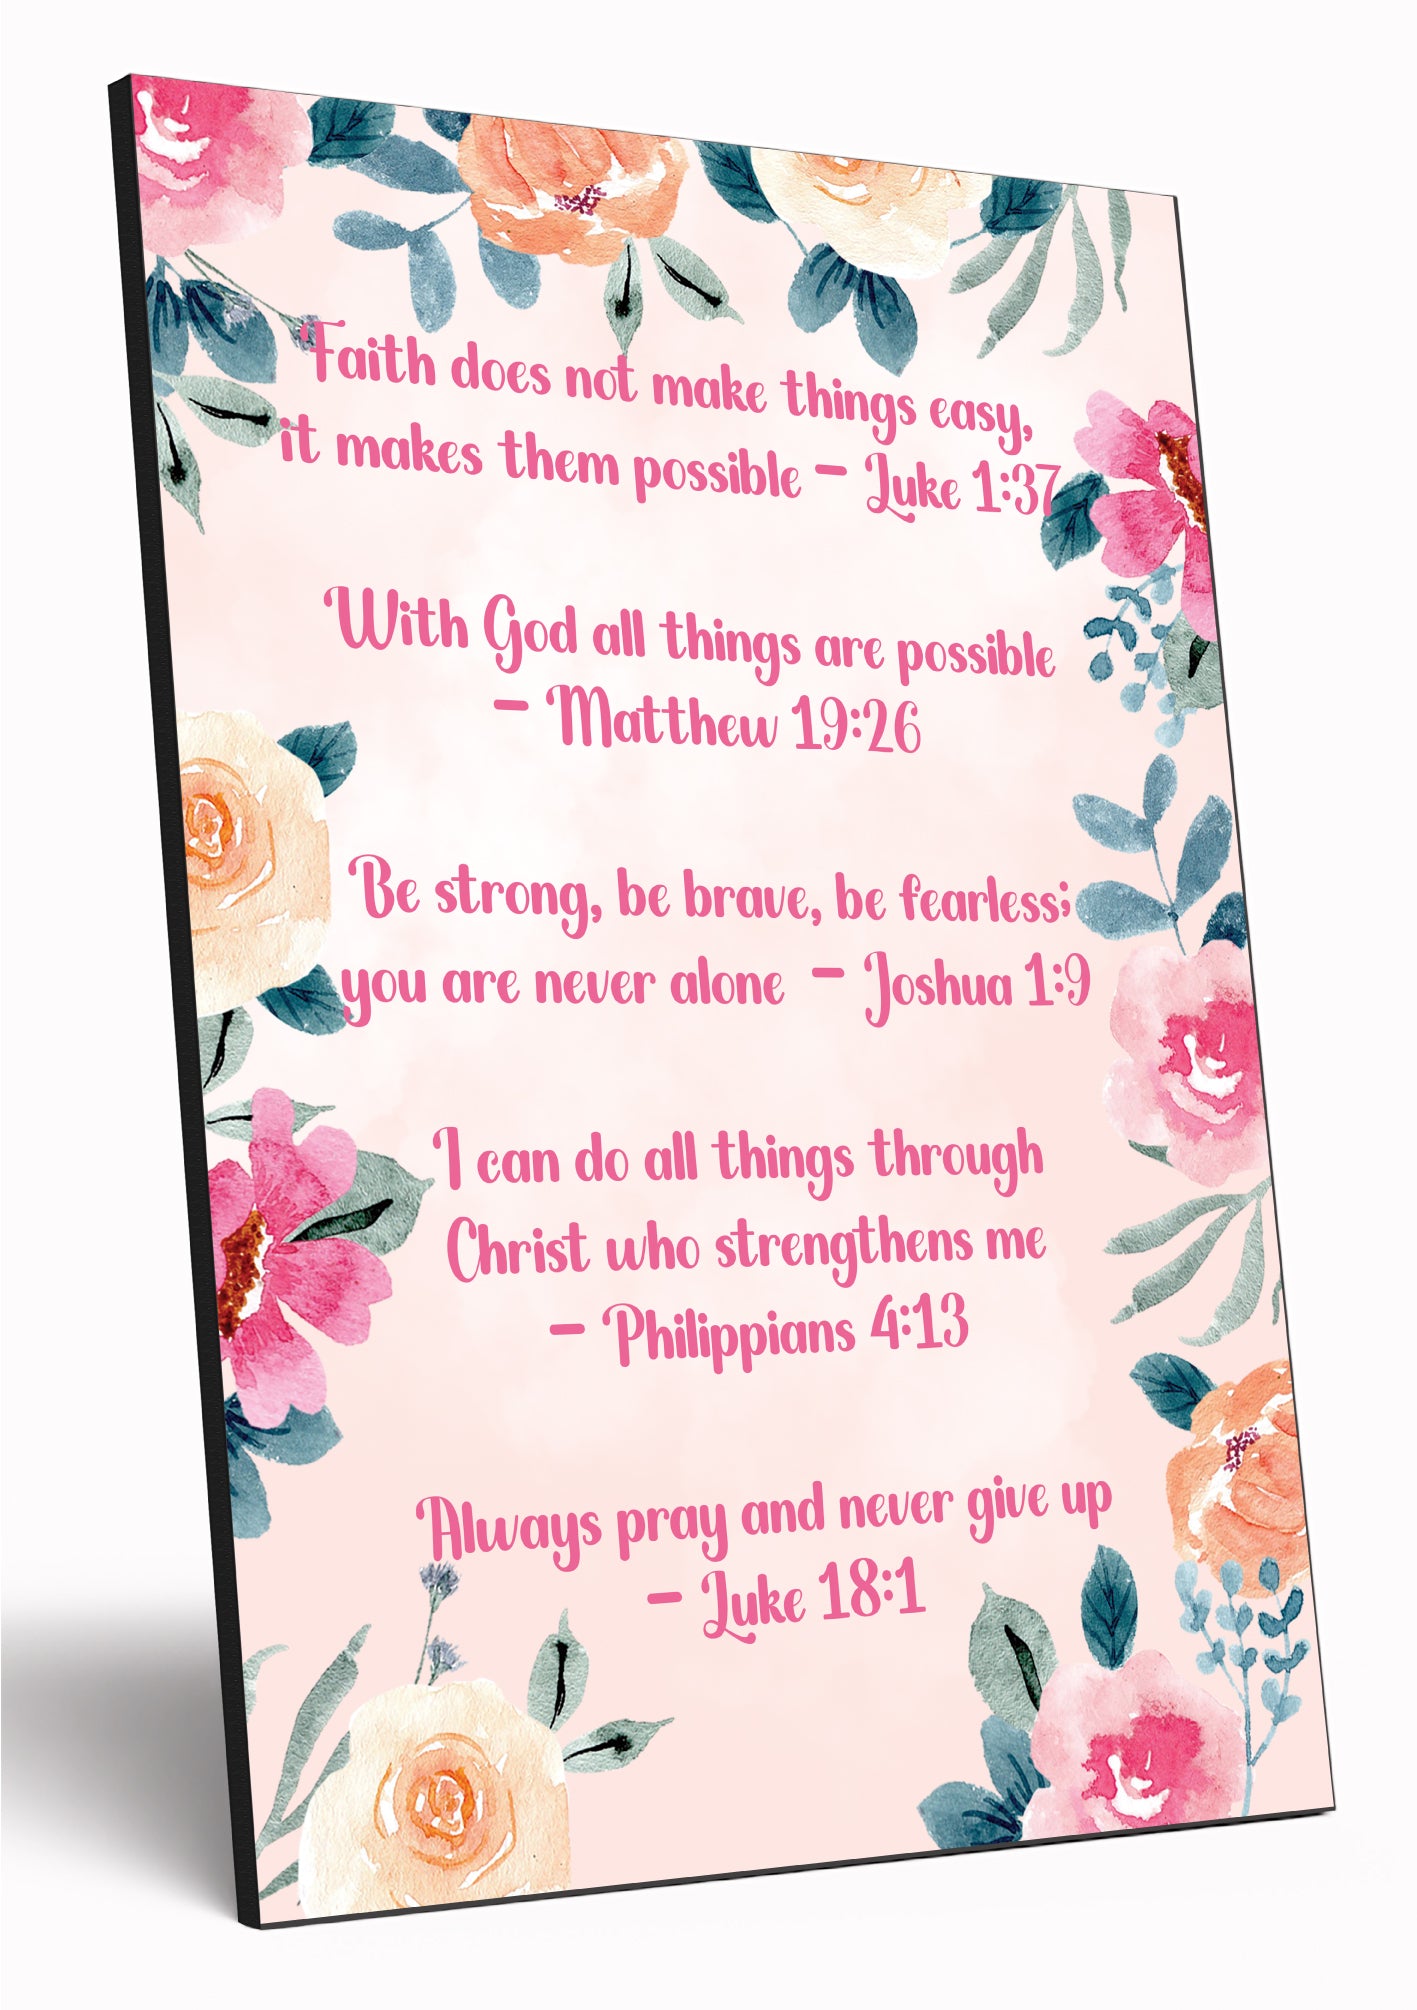 Faith does not make things easy,
it makes them possible - Luke 1:37
With God all things are possible
- Matthew 19:26
Be strong, be brave, be fearless;
you are never alone - Joshua 1:9
I can do all things through
Christ who strengthens me
- Philippians 4:13
Always pray and never give up
- Luke 18:1